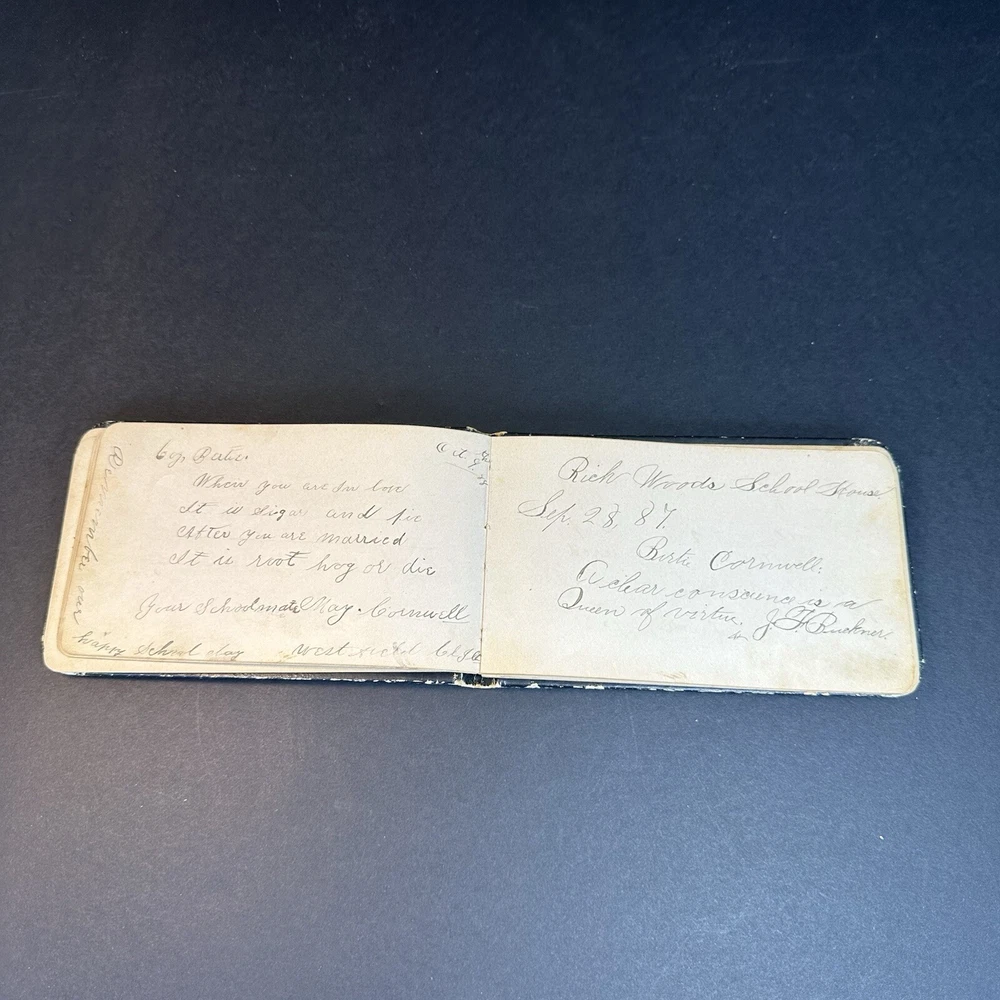 When you are in love
It is sugar and pie
After you are married
It is root hog or die
Your Schoolmate May Cornwell
Remember our
happy School day
Rich Woods School House
Sep. 28, 87.
Birtie Cornwell:
A clear conscience is a
Queen of virtue.
J. F. Buckner